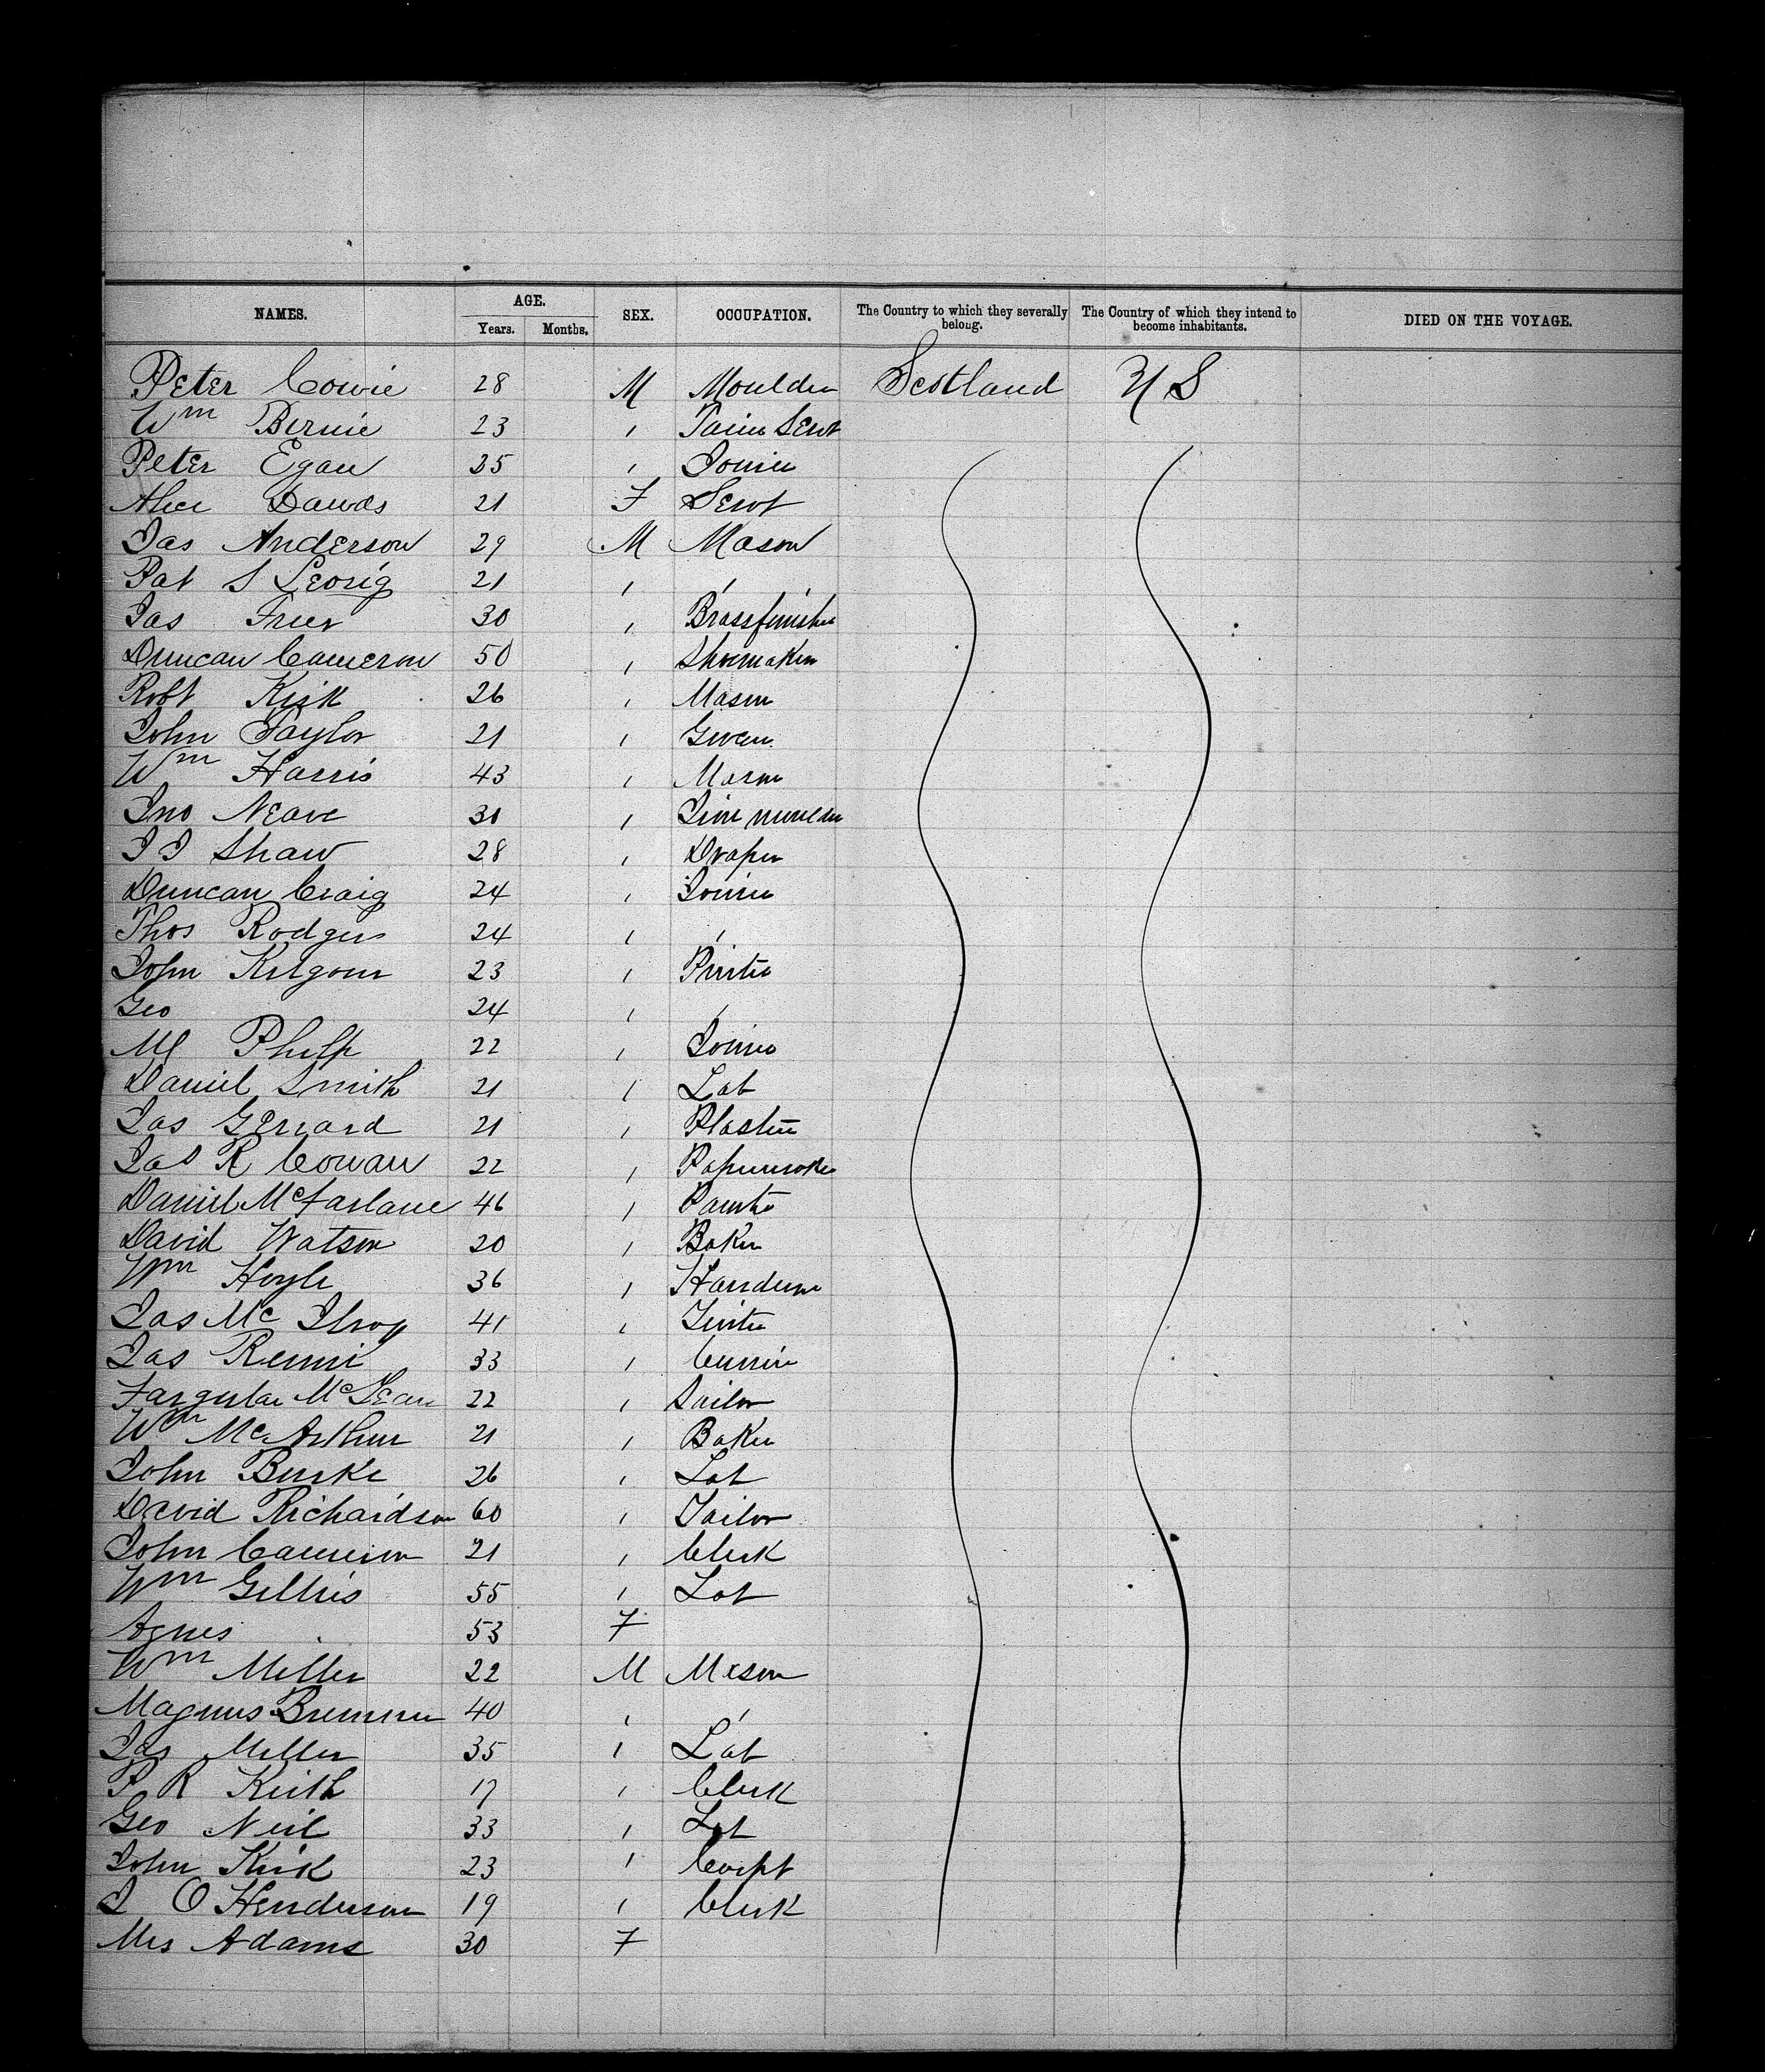 NAMES. AGE. SEX. OCCUPATION. The Country to which they severally belong. The Country of which they intend to become inhabitants. DIED ON THE VOYAGE.
Years. Months.
Peter Cowie 28 M Moulder Scotland U S
Wm Birnie 23 " Farm Servt
Peter Egan 35 " Joiner
Alice Dawds 21 F Servt
Jas Anderson 29 M Mason
Pat S 21 " "
Jas Frier 30 " Brassfinisher
Duncan Cameron 50 " Shoemaker
Robt Kirk 26 " Mason
John Taylor 21 " Grocer
Wm Harris 43 " Mason
Jno Neave 30 " Iron moulder
J J Shaw 28 " Draper
Duncan Craig 24 " Joiner
Thos Rodgers 24 " "
John Kilgour 23 " Printer
Geo 24 " "
Philp 22 " Joiner
Daniel Smith 21 " Lab
Jas Gerrard 21 " Plaster
Jas R Cowan 22 " Papermaker
Daniel McFarlane 46 " Painter
David Watson 20 " Baker
Wm Hoyle 36 "
Jas Mc Ilroy 41 "
Jas Rennie 33 " Currier
Farquhar McLean 22 " Sailor
Wm McArthur 21 " Baker
John Burke 26 " Lab
David Richardson 60 " Tailor
John Cameron 21 " Clerk
Wm Gillies 55 " Lab
Agnes 53 F
Wm Miller 22 M Mason
Magnus Bremner 40 " "
Jas Miller 35 " Lab
P R Keith 17 " Clerk
Geo Neil 33 " Lab
John Kirk 23 " Carpt
J O Henderson 19 " Clerk
Mrs Adams 30 F